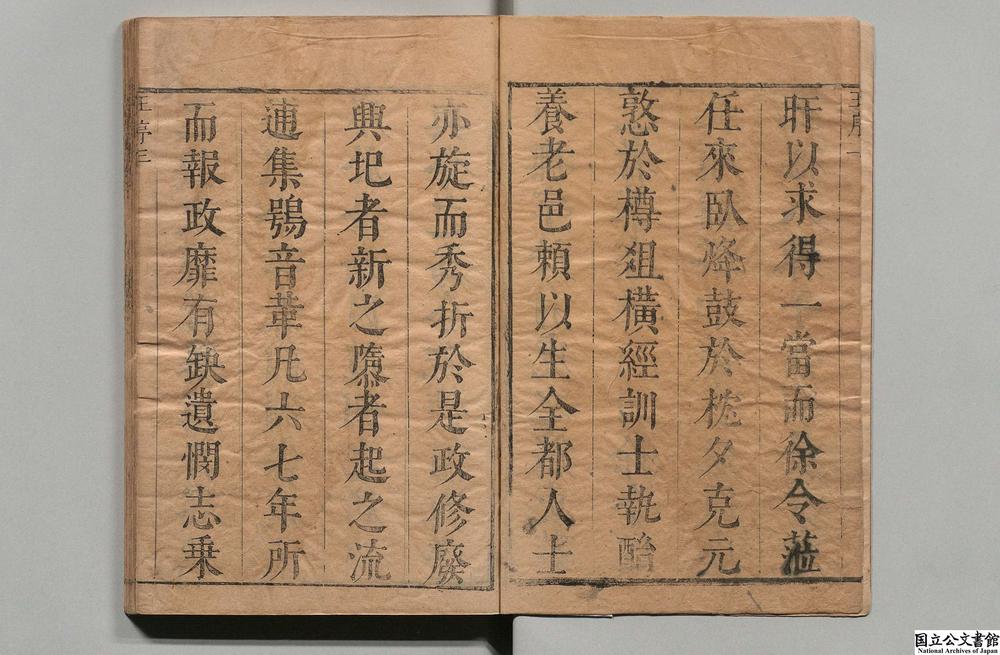 旰以求得一當而徐令蒞
任來臥烽鼓於枕夕克元
憝於樽俎橫經訓士執酳
養老邑賴以生全都人士
亦旋而秀折於是政修廢
興圯者新之隳者起之流
逋集鴞音革凡六七年所
而報政靡有缺遺憫志乗
国立公文書館
National Archives of Japan